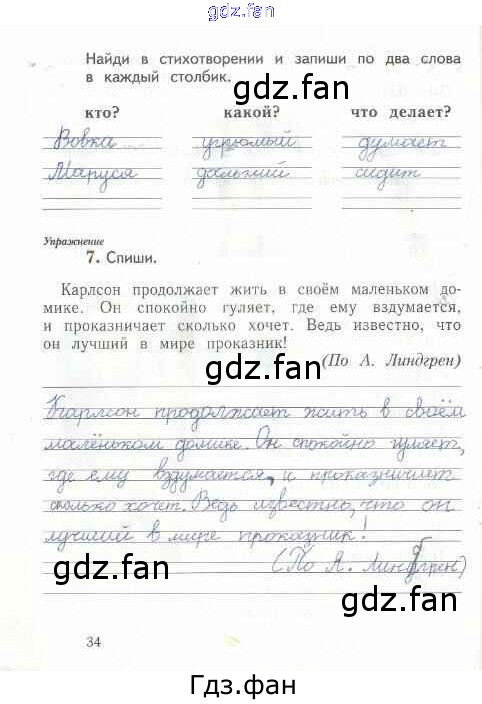 gdz.fan
Найди в стихотворении и запиши по два слова
в каждый столбик.
gdz.fan
кто? какой? что делает?
Вовка угрюмый думает
Маруся дальний сидит
gdz.fan
Упражнение
7. Спиши.
Карлсон продолжает жить в своём маленьком до-
мике. Он спокойно гуляет, где ему вздумается,
и проказничает сколько хочет. Ведь известно, что
он лучший в мире проказник!
(По А. Линдгрен)
gdz.fan
Карлсон продолжает жить в своём
маленьком домике. Он спокойно гуляет,
где ему вздумается, и проказничает
сколько хочет. Ведь известно, что он
лучший в мире проказник!
(По А. Линдгрен)
gdz.fan
gdz.fan
34
Гдз.фан